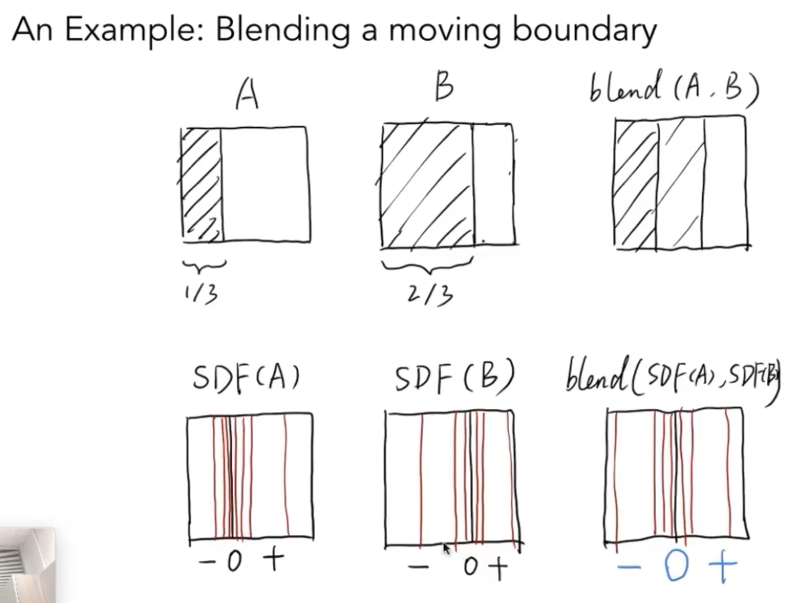 An Example: Blending a moving boundary
A B blend (A, B)
1/3 2/3
SDF(A) SDF (B) blend(SDF(A), SDF(B)
- 0 + - 0 + - 0 +